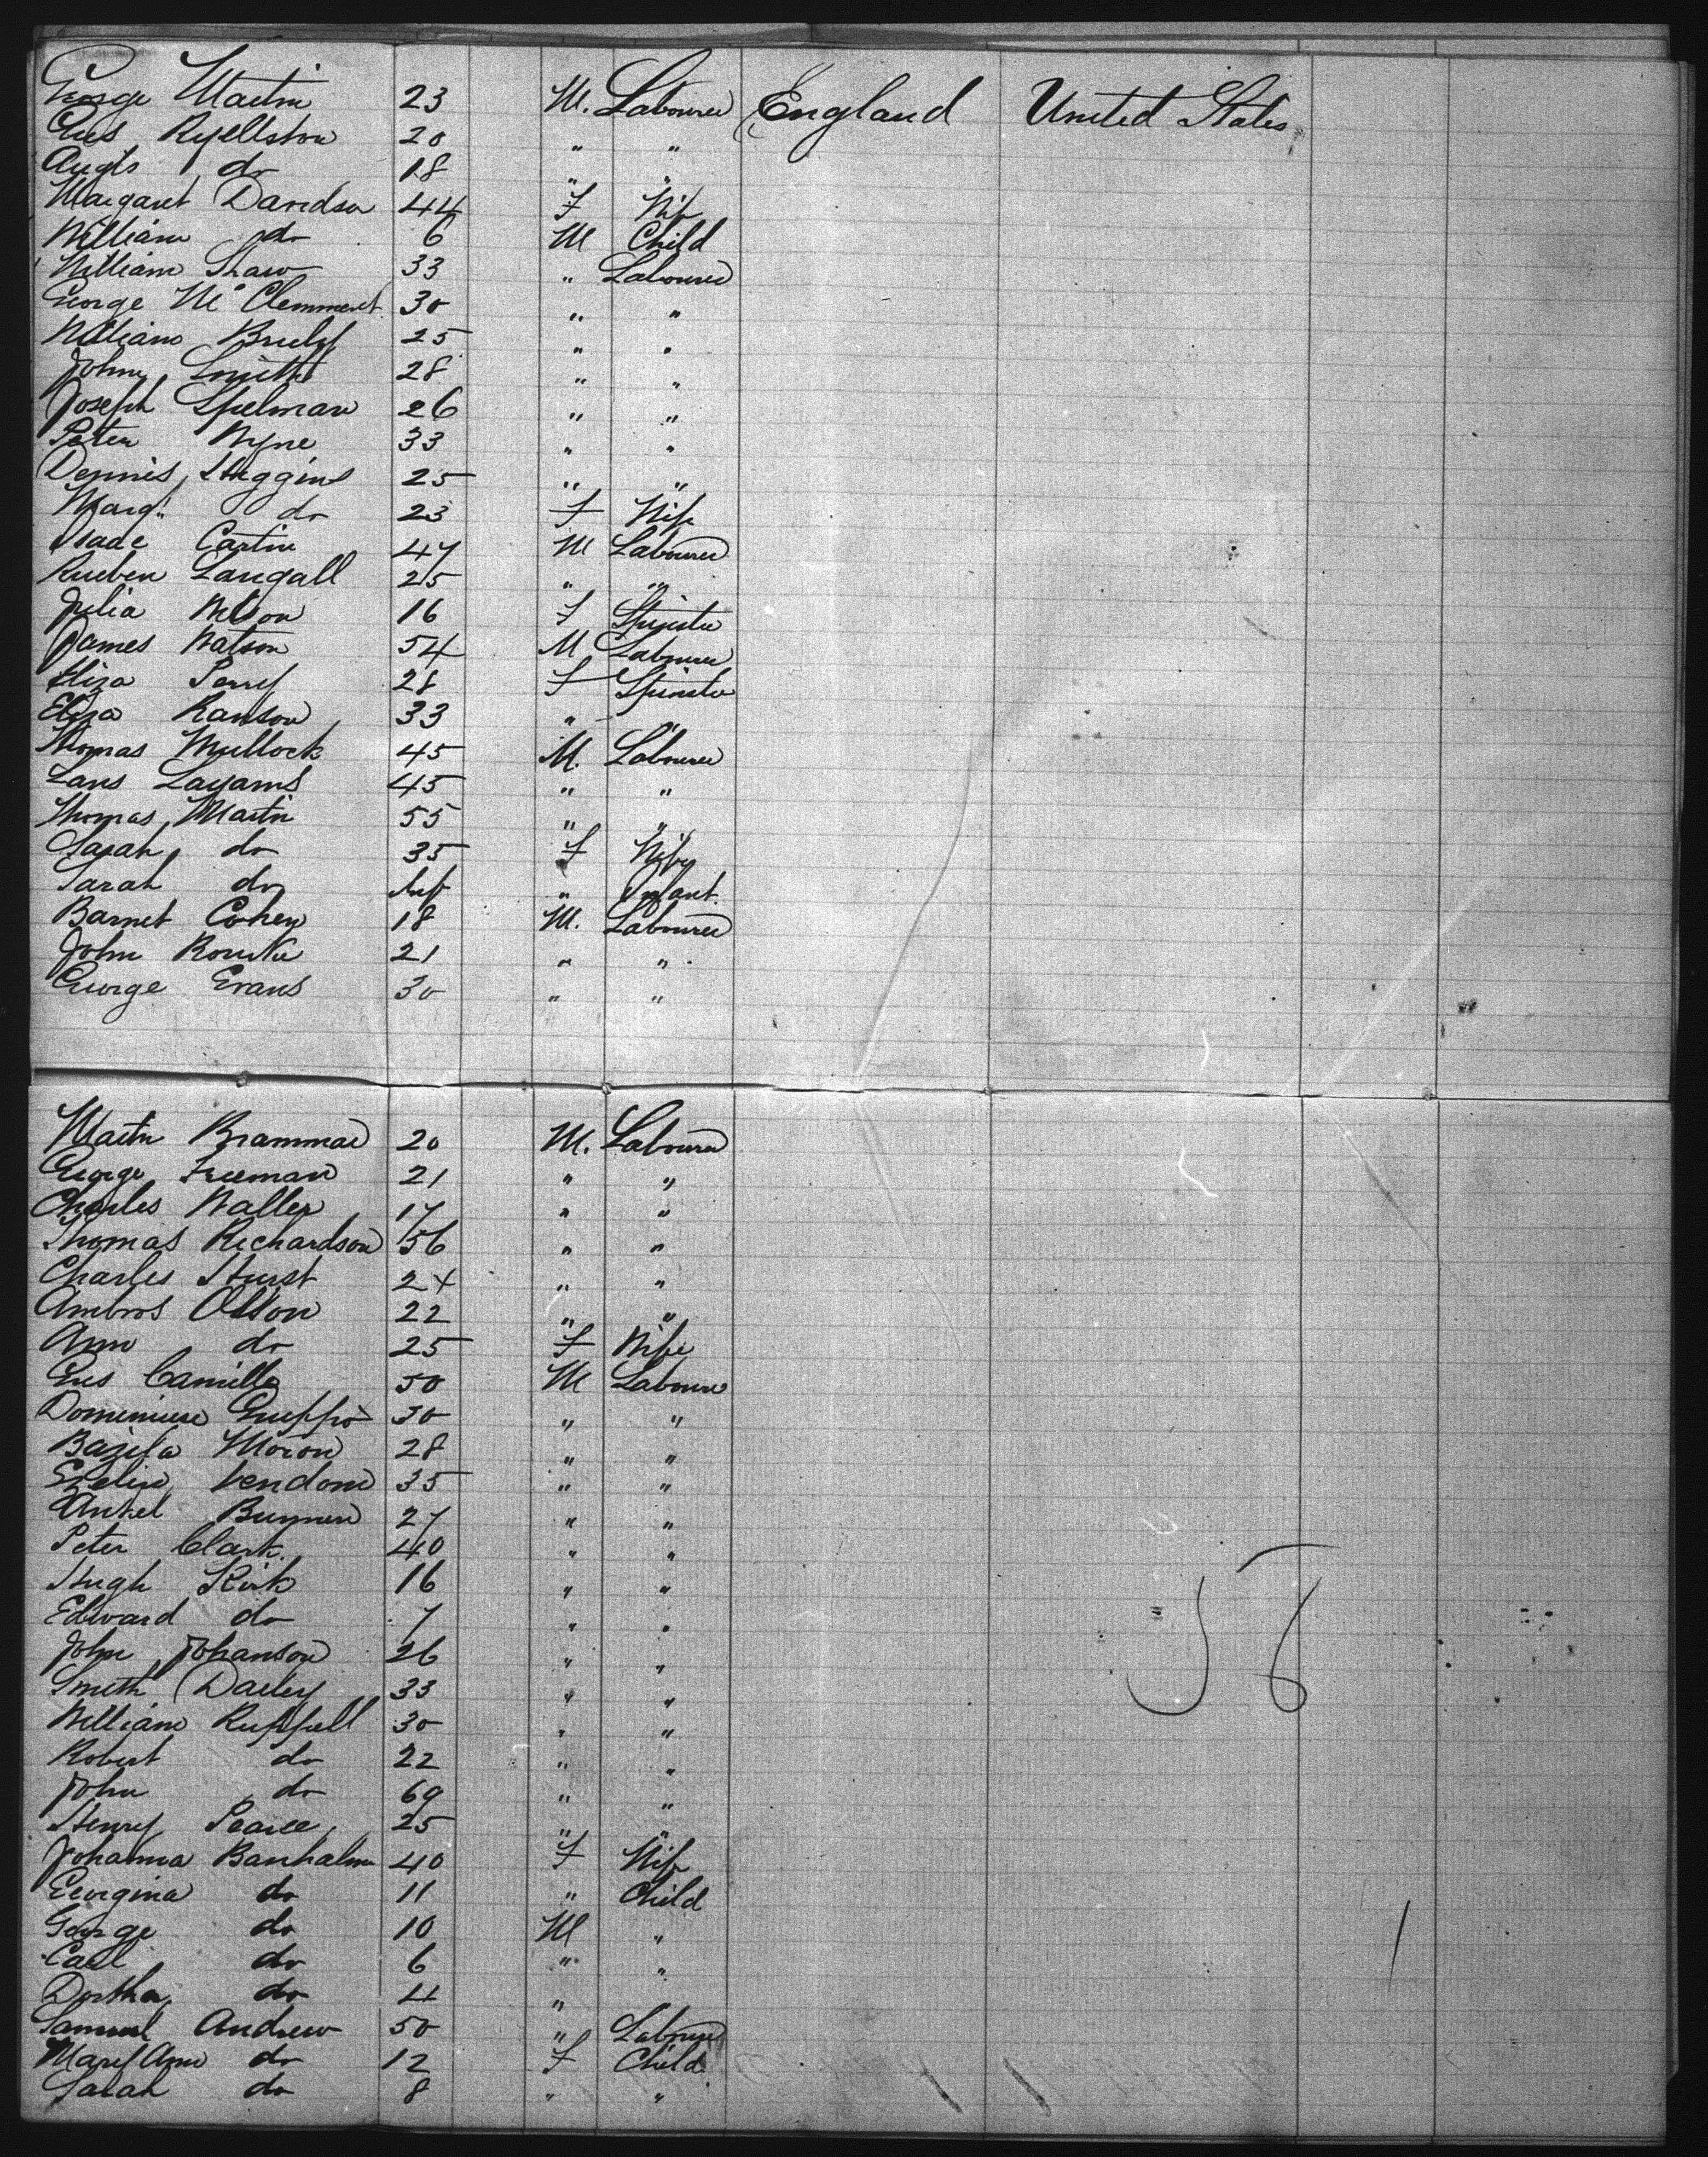 George Martin 23 M. Labourer England United States
Gus Ryellstrom 20 " "
Augts do 18 " "
Margaret Davidson 44 F Wife
William do 6 M Child
William Shaw 33 " Labourer
George Mc Clemment 30 " "
William 25 " "
John Smith 28 " "
Joseph Spelman 26 " "
Peter Wyne 33 " "
Dennis Higgins 25 " "
Margt do 23 F Wife
Isaac Castin 47 M Labourer
Rueben Langall 25 " "
Julia Wilson 16 F Spinster
James Watson 54 M Labourer
Eliza Perry 28 F Spinster
Eliza Ranson 33 " "
Thomas Mullock 45 M. Labourer
Lars Layams 45 " "
Thomas Martin 55 " "
Sarah do 35 F Wife
Sarah do Inf " Infant
Barnet Cohen 18 M. Labourer
John Rourke 21 " "
George Evans 30 " "
Martin Brammar 20 M. Labourer
George Freeman 21 " "
Charles Waller 17 " "
Thomas Richardson 56 " "
Charles Hurst 24 " "
Ambros Olsson 22 " "
Ann do 25 F Wife
Gus Camille 50 M Labourer
30 " "
Bazila Moron 28 " "
Vendome 35 " "
27 " "
Peter Clark. 40 " "
Hugh Kirk 16 " "
Edward do 7 " "
John Johanson 26 " "
Smith Dailey 33 " "
William Russell 30 " "
Robert do 22 " "
John do 69 " "
Henry Pearce 25 " "
Johanna Banhalm 40 F Wife
Georgina do 11 " Child
George do 10 M "
Carl do 6 " "
Dorthea do 4 "
Samuel Andrew 50 " Labourer
Mary Ann do 12 F Child
Sarah do 8 " "